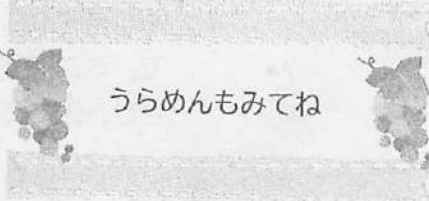 うらめんもみてね